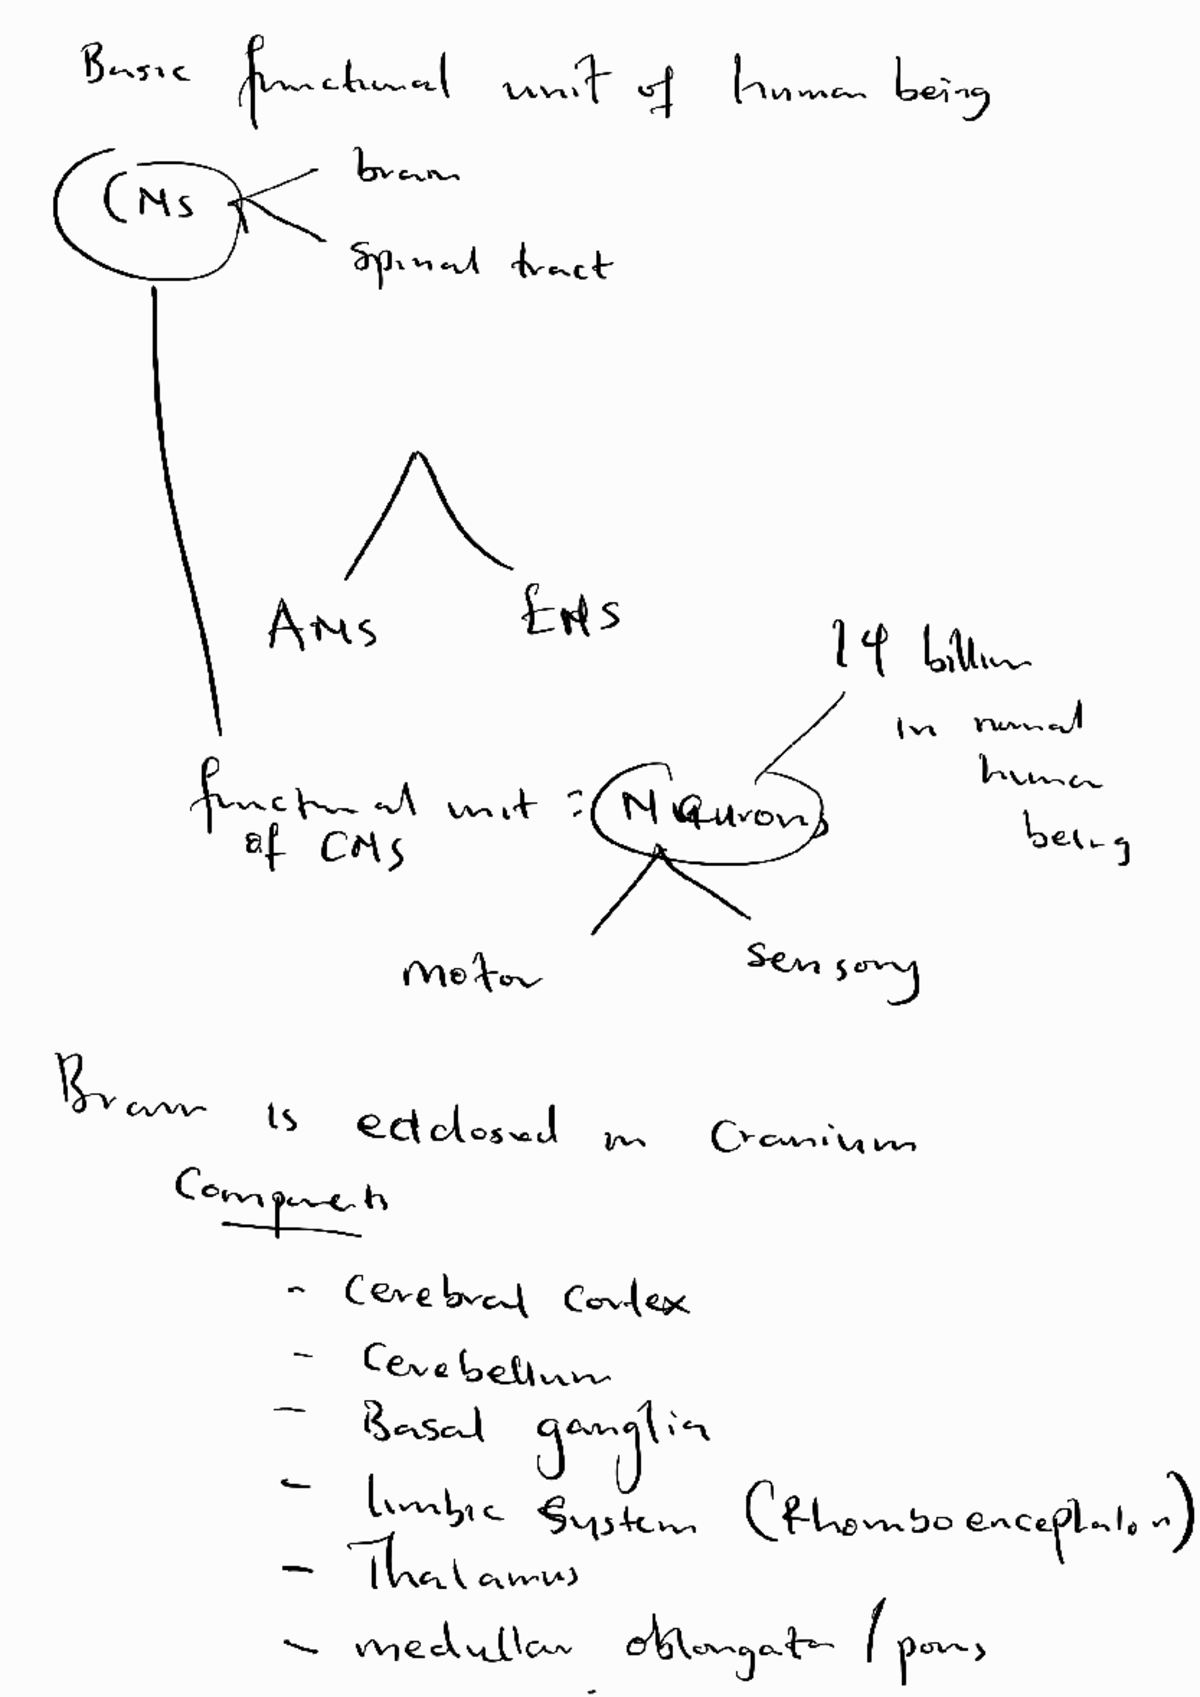 Basic functional unit of human being
CNS
brain
spinal tract
ANS
ENS
14 billion
in normal
human
being
functional unit = Neurons
of CNS
motor
sensory
Brain is enclosed in Cranium
Components
- Cerebral Cortex
- Cerebellum
- Basal ganglia
- limbic System (Rhomboencephalon)
- Thalamus
- medullar oblongata / pons